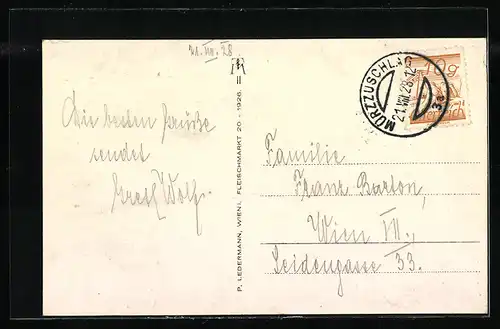 21.VIII.28
II
Die besten Grüße
sendet
Gretl Wolf.
P. LEDERMANN, WIEN I, FLEISCHMARKT 20 - 1926.
MÜRZZUSCHLAG
21.VIII.28.12
3a
10g
Familie
Franz Barton,
Wien VII.,
Seidengasse 33.